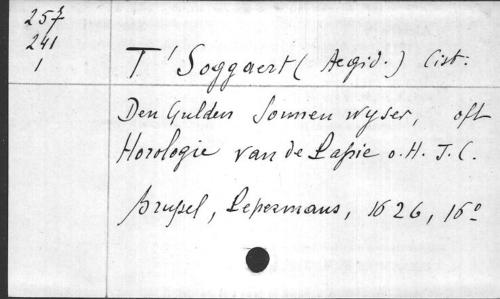 257
241
1
T'Soggaert (Aegid.) Cist:
Den Gulden Sonnen wyser, oft
Horologie van de Passie o.H. J.C.
Brussel, Pepermans, 1626, 16º